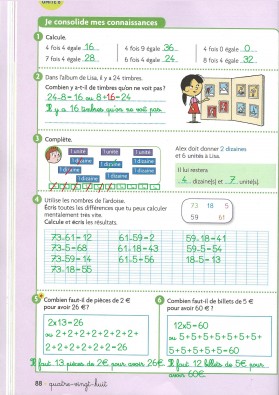 UNITÉ 8
Je consolide mes connaissances
1 Calcule.
4 fois 4 égale 16
4 fois 9 égale 36
4 fois 0 égale 0
7 fois 4 égale 28
6 fois 4 égale 24
8 fois 4 égale 32
2 Dans l'album de Lisa, il y a 24 timbres.
Combien y a-t-il de timbres qu'on ne voit pas ?
24-8=16 ou 8+16=24
Il y a 16 timbres qu'on ne voit pas
3 Complète.
1 unité 1 unité 1 unité
1 dizaine 1 unité
1 dizaine 1 dizaine
1 dizaine
Alex doit donner 2 dizaines
et 6 unités à Lisa.
Il lui restera
4 dizaine(s) et 7 unité(s).
4 Utilise les nombres de l'ardoise.
Écris toutes les différences que tu peux calculer
mentalement très vite.
Calcule et écris les résultats.
73 18 5
59 61
73-61=12 61-59=2 59-18=41
73-5=68 61-18=43 59-5=54
73-59=14 61-5=56 18-5=13
73-18=55
5 Combien faut-il de pièces de 2 €
pour avoir 26 € ?
2x13=26
ou 2+2+2+2+2+2+2+
2+2+2+2+2+2=26
Il faut 13 pièces de 2€ pour avoir 26€.
6 Combien faut-il de billets de 5 €
pour avoir 60 € ?
12x5=60
ou 5+5+5+5+5+5+5+
5+5+5+5+5=60
Il faut 12 billets de 5€ pour
avoir 60€.
88 • quatre-vingt-huit